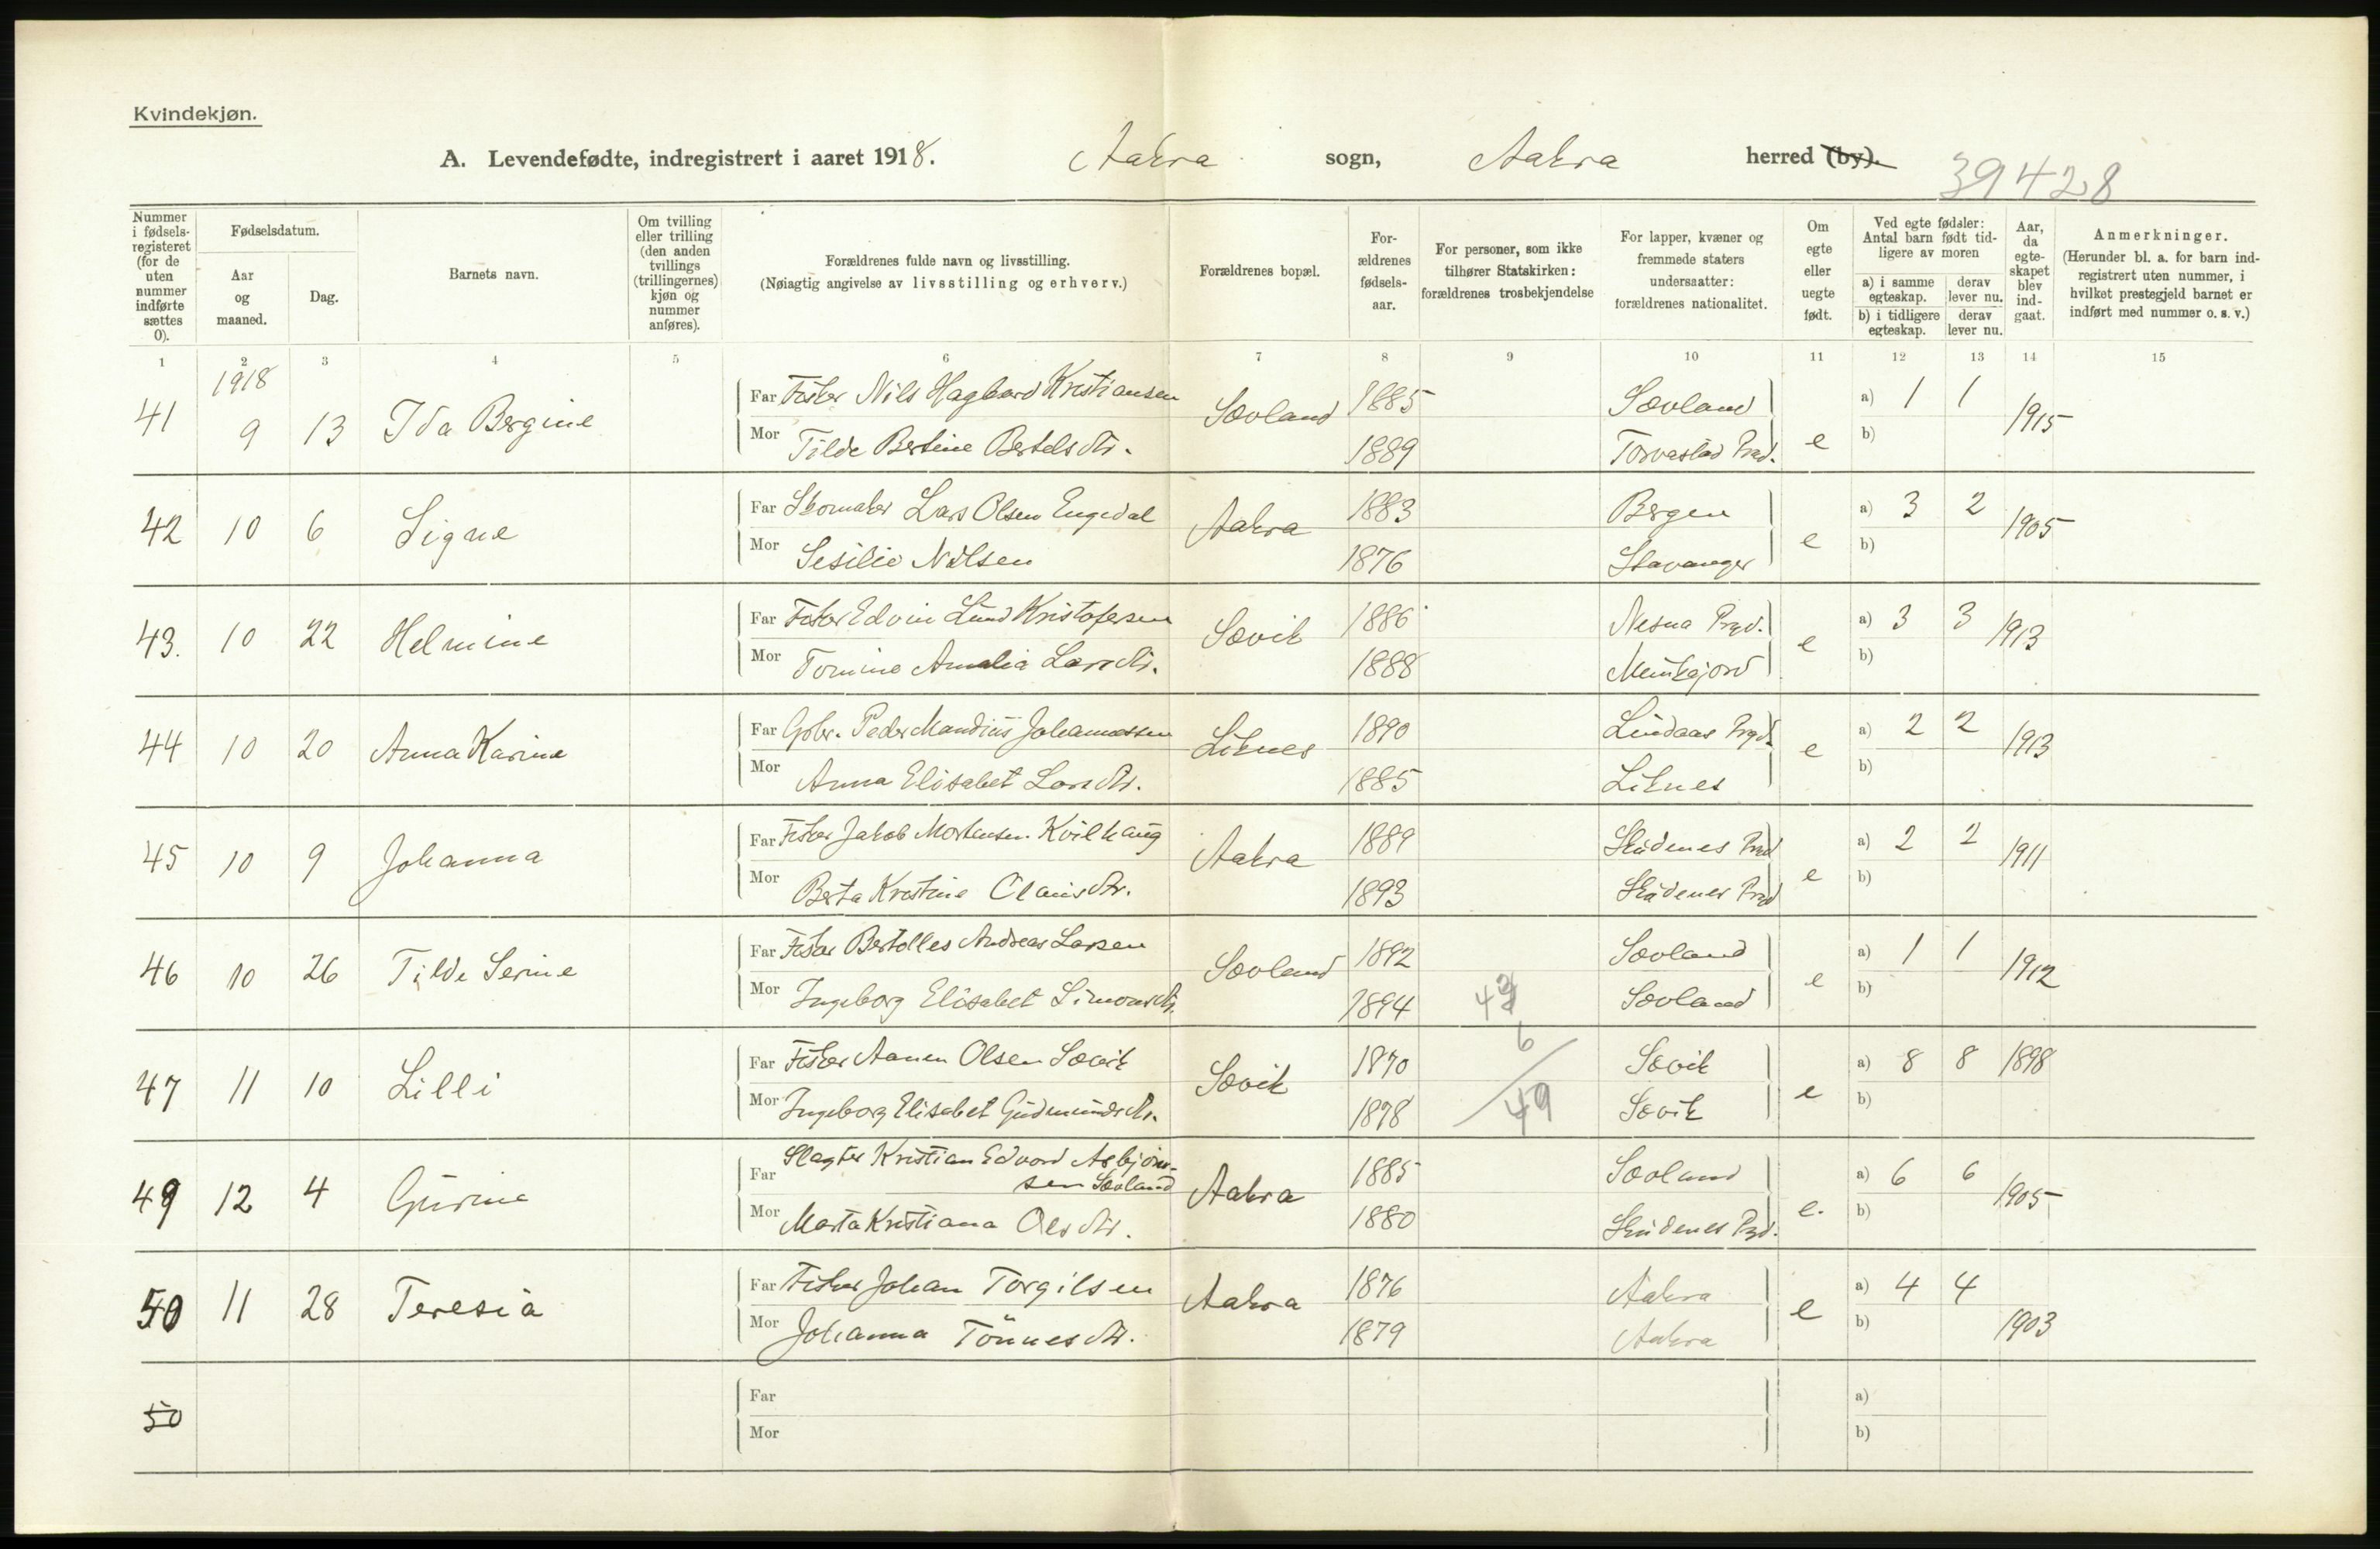 Kvindekjøn.
A. Levendefødte, indregistrert i aaret 1918. Aakra sogn, Aakra herred (by).
39428
Nummer i fødsels-registeret (for de uten nummer indførte sættes 0).
Fødselsdatum.
Aar og maaned.
Dag.
Barnets navn.
Om tvilling eller trilling (den anden tvillings (trillingernes) kjøn og nummer anføres).
Forældrenes fulde navn og livsstilling.
(Nøiagtig angivelse av livsstilling og erhverv.)
Forældrenes bopæl.
For-ældrenes fødsels-aar.
For personer, som ikke tilhører Statskirken: forældrenes trosbekjendelse
For lapper, kvæner og fremmede staters undersaatter: forældrenes nationalitet.
Om egte eller uegte født.
Ved egte fødsler: Antal barn født tid-ligere av moren
a) i samme egteskap.
derav lever nu.
b) i tidligere egteskap.
derav lever nu.
Aar, da egte-skapet blev ind-gaat.
Anmerkninger.
(Herunder bl. a. for barn ind-registrert uten nummer, i hvilket prestegjeld barnet er indført med nummer o. s. v.)
1 2 3 4 5 6 7 8 9 10 11 12 13 14 15
1918
41 9 13 Ida Bergine
Far Fisker Nils Hagbard Kristiansen Sævland 1885 Sævland a) 1 1 1915
Mor Tilde Bertine Bertelsdtr. 1889 Torvastad Prgd. e b)
42 10 6 Signe
Far Skomaker Lars Olsen Engedal Aakra 1883 Bergen a) 3 2 1905
Mor Sesilie Nilsen 1876 Stavanger e b)
43. 10 22 Helmine
Far Fisker Edvin Lund Kristofersen Sævik 1886 Nesna Prgd. a) 3 3 1913
Mor Tomine Amalia Larsdtr. 1888 Munkejord e b)
44 10 20 Anna Karine
Far Gbr. Peder Mandius Johannessen Liknes 1890 Lindaas Prgd. a) 2 2 1913
Mor Anna Elisabet Larsdtr. 1885 Liknes e b)
45 10 9 Johanna
Far Fisker Jakob Mortensen Kvilhaug Aakra 1889 Skudenes Prgd a) 2 2 1911
Mor Berta Kristine Clausdtr. 1893 Skudenes Prgd e b)
46 10 26 Tilde Serine
Far Fisker Bertolles Andreas Larsen Sævland 1892 Sævland a) 1 1 1912
Mor Ingeborg Elisabet Simonsdtr. 1894 Sævland e b)
6
49
47 11 10 Lilli
Far Fisker Aanen Olsen Sævik Sævik 1870 Sævik a) 8 8 1898
Mor Ingeborg Elisabet Gudmundsdtr. 1878 Sævik e b)
49 12 4 Gurine
Far Slagter Kristian Edvard Asbjørn-
sen Sævland Aakra 1885 Sævland a) 6 6 1905
Mor Marta Kristiana Olsdtr. 1880 Skudenes Prgd. e. b)
50 11 28 Teresia
Far Fisker Johan Torgilsen Aakra 1876 Aakra a) 4 4
Mor Johanna Tönnesdtr. 1879 Aakra e b) 1903
50
Far a)
Mor b)